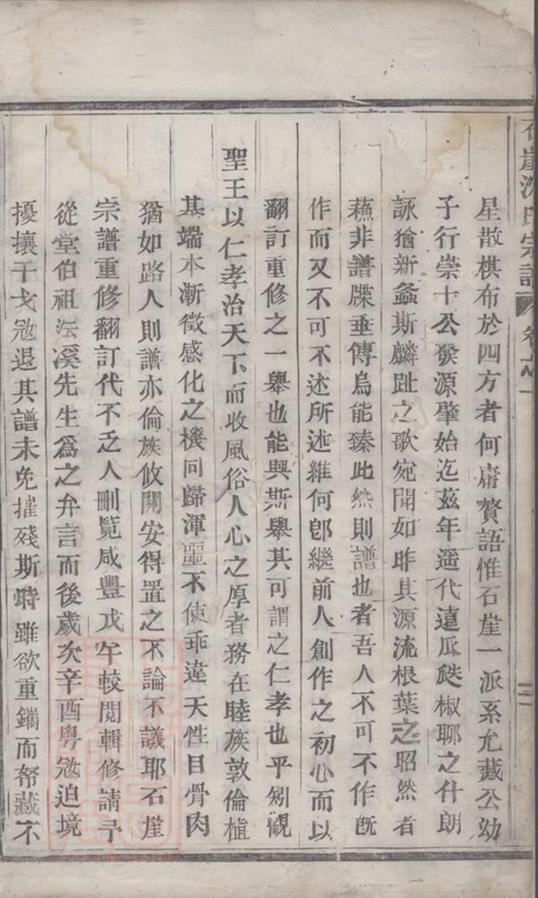 石崖沈氏宗譜 卷之 一
星散棋布於四方者何庸贅語惟石崖一派系允藏公幼
子行崇十公發源肇始迄茲年遥代遠瓜瓞椒聊之什朗
詠猶新螽斯麟趾之歌宛聞如昨其源流根葉之昭然者
蘓非譜牒垂傳烏能臻此然則譜也者吾人不可不作旣
作而又不可不述所述維何卽繼前人創作之初心而以
翻訂重修之一舉也能與斯舉其可謂之仁孝也乎矧觀
聖王以仁孝治天下而收風俗人心之厚者務在睦族敦倫植
基端本漸徵感化之機同歸渾噩不使乖違天性目骨肉
猶如路人則譜亦倫族攸關安得置之不論不議耶石崖
宗譜重修翻訂代不乏人刪覧咸豐戊午較閲輯修請予
從堂伯祖 溪先生爲之弁言而後歲次辛酉粵宼迫境
擾攘干戈宼退其譜未免摧殘斯時雖欲重鐫而帑藏不